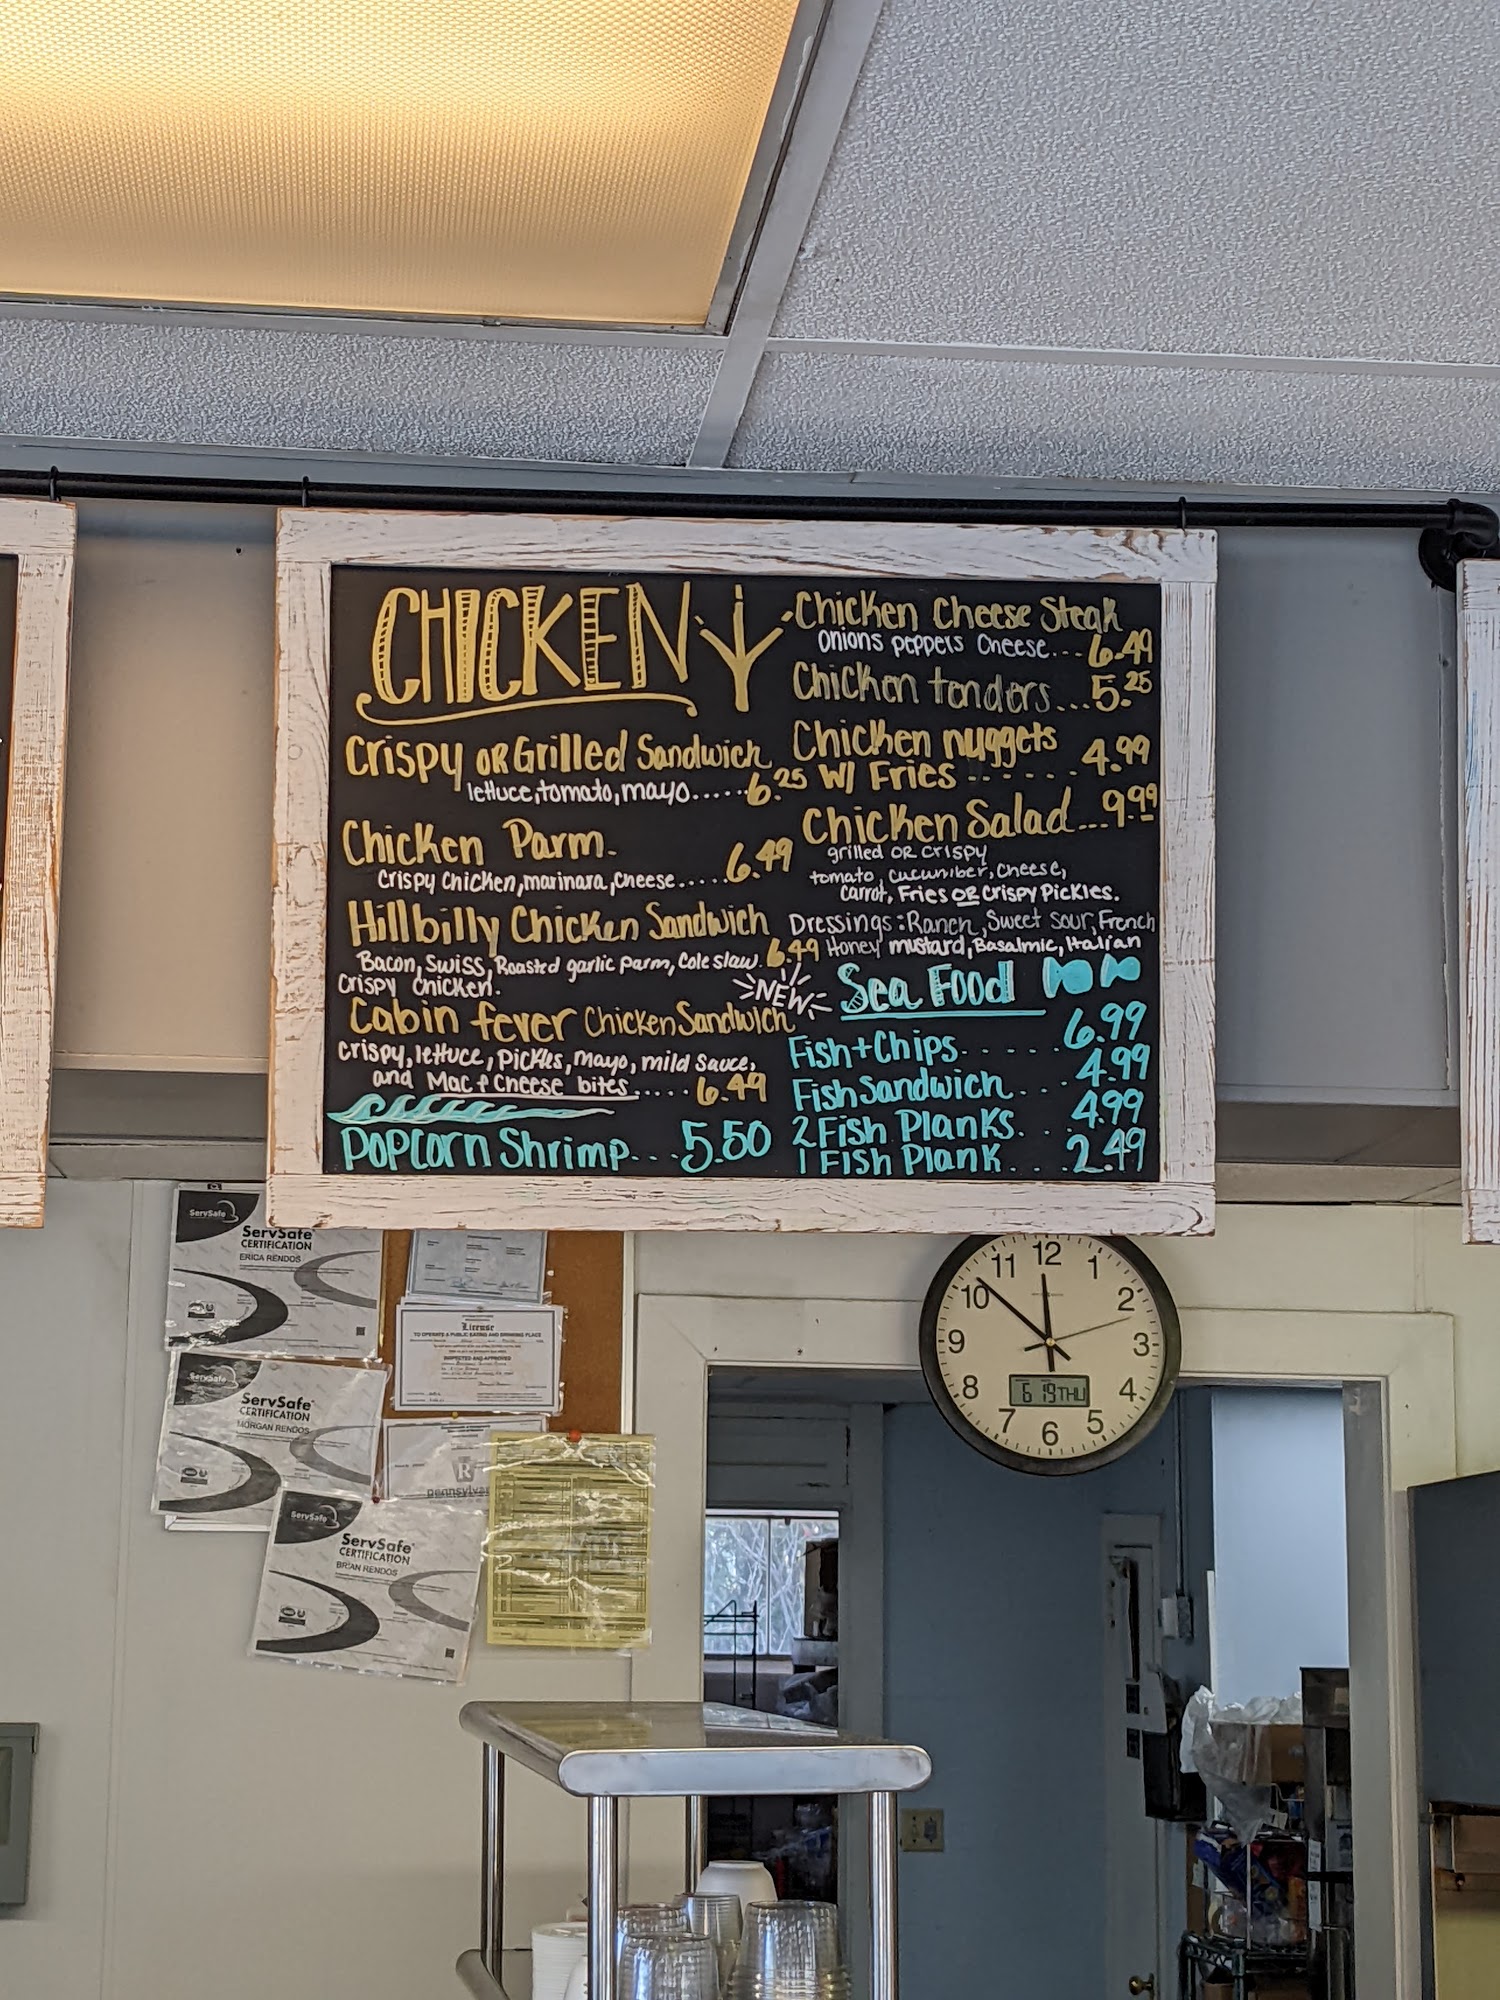 CHICKEN
Crispy OR Grilled Sandwich
lettuce, tomato, mayo.....6.25
Chicken Parm.
Crispy Chicken, marinara, cheese.....6.49
Hillbilly Chicken Sandwich
Bacon, Swiss, Roasted garlic parm, Cole slaw. 6.49
Crispy Chicken.
Cabin fever Chicken Sandwich
Crispy, lettuce, pickles, mayo, mild sauce,
and Mac & Cheese bites.....6.49
Popcorn Shrimp...5.50
Chicken Cheese Steak
onions peppers Cheese...6.49
Chicken tenders...5.25
Chicken nuggets
W/ Fries ...... 4.99
Chicken Salad...9.99
grilled OR crispy
tomato, cucumber, cheese,
carrot, Fries OR Crispy Pickles.
Dressings: Ranch, Sweet sour, French
Honey mustard, Basalmic, Italian
NEW
Sea Food
Fish + Chips..... 6.99
Fish Sandwich... 4.99
2 Fish Planks... 4.99
1 Fish Plank... 2.49
ServSafe
ServSafe
CERTIFICATION
ERICA RENDOS
ServSafe
ServSafe
CERTIFICATION
MORGAN RENDOS
ServSafe
ServSafe
CERTIFICATION
BRIAN RENDOS
License
TO OPERATE A PUBLIC EATING AND DRINKING PLACE
INSPECTED AND APPROVED
pennsylva
12
1
2
3
4
5
6
7
8
9
10
11
6 19 THU